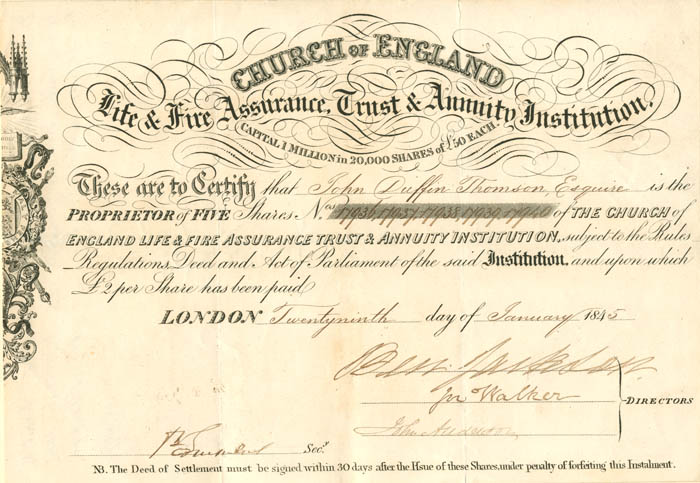 CHURCH OF ENGLAND
Life & Fire Assurance, Trust & Annuity Institution.
CAPITAL 1 MILLION in 20,000 SHARES of £50 EACH
These are to Certify that John Duffin Thomson Esquire is the
PROPRIETOR of FIVE Shares Nos 17936, 17937, 17938, 17939, 17940 of THE CHURCH of
ENGLAND LIFE & FIRE ASSURANCE TRUST & ANNUITY INSTITUTION, subject to the Rules
Regulations, Deed and Act of Parliament of the said Institution, and upon which
£2 per Share has been paid
LONDON Twentyninth day of January 1845
Jackson
Jn Walker
DIRECTORS
John Anderson
Secy
NB. The Deed of Settlement must be signed within 30 days after the Issue of these Shares, under penalty of forfeiting this Instalment.